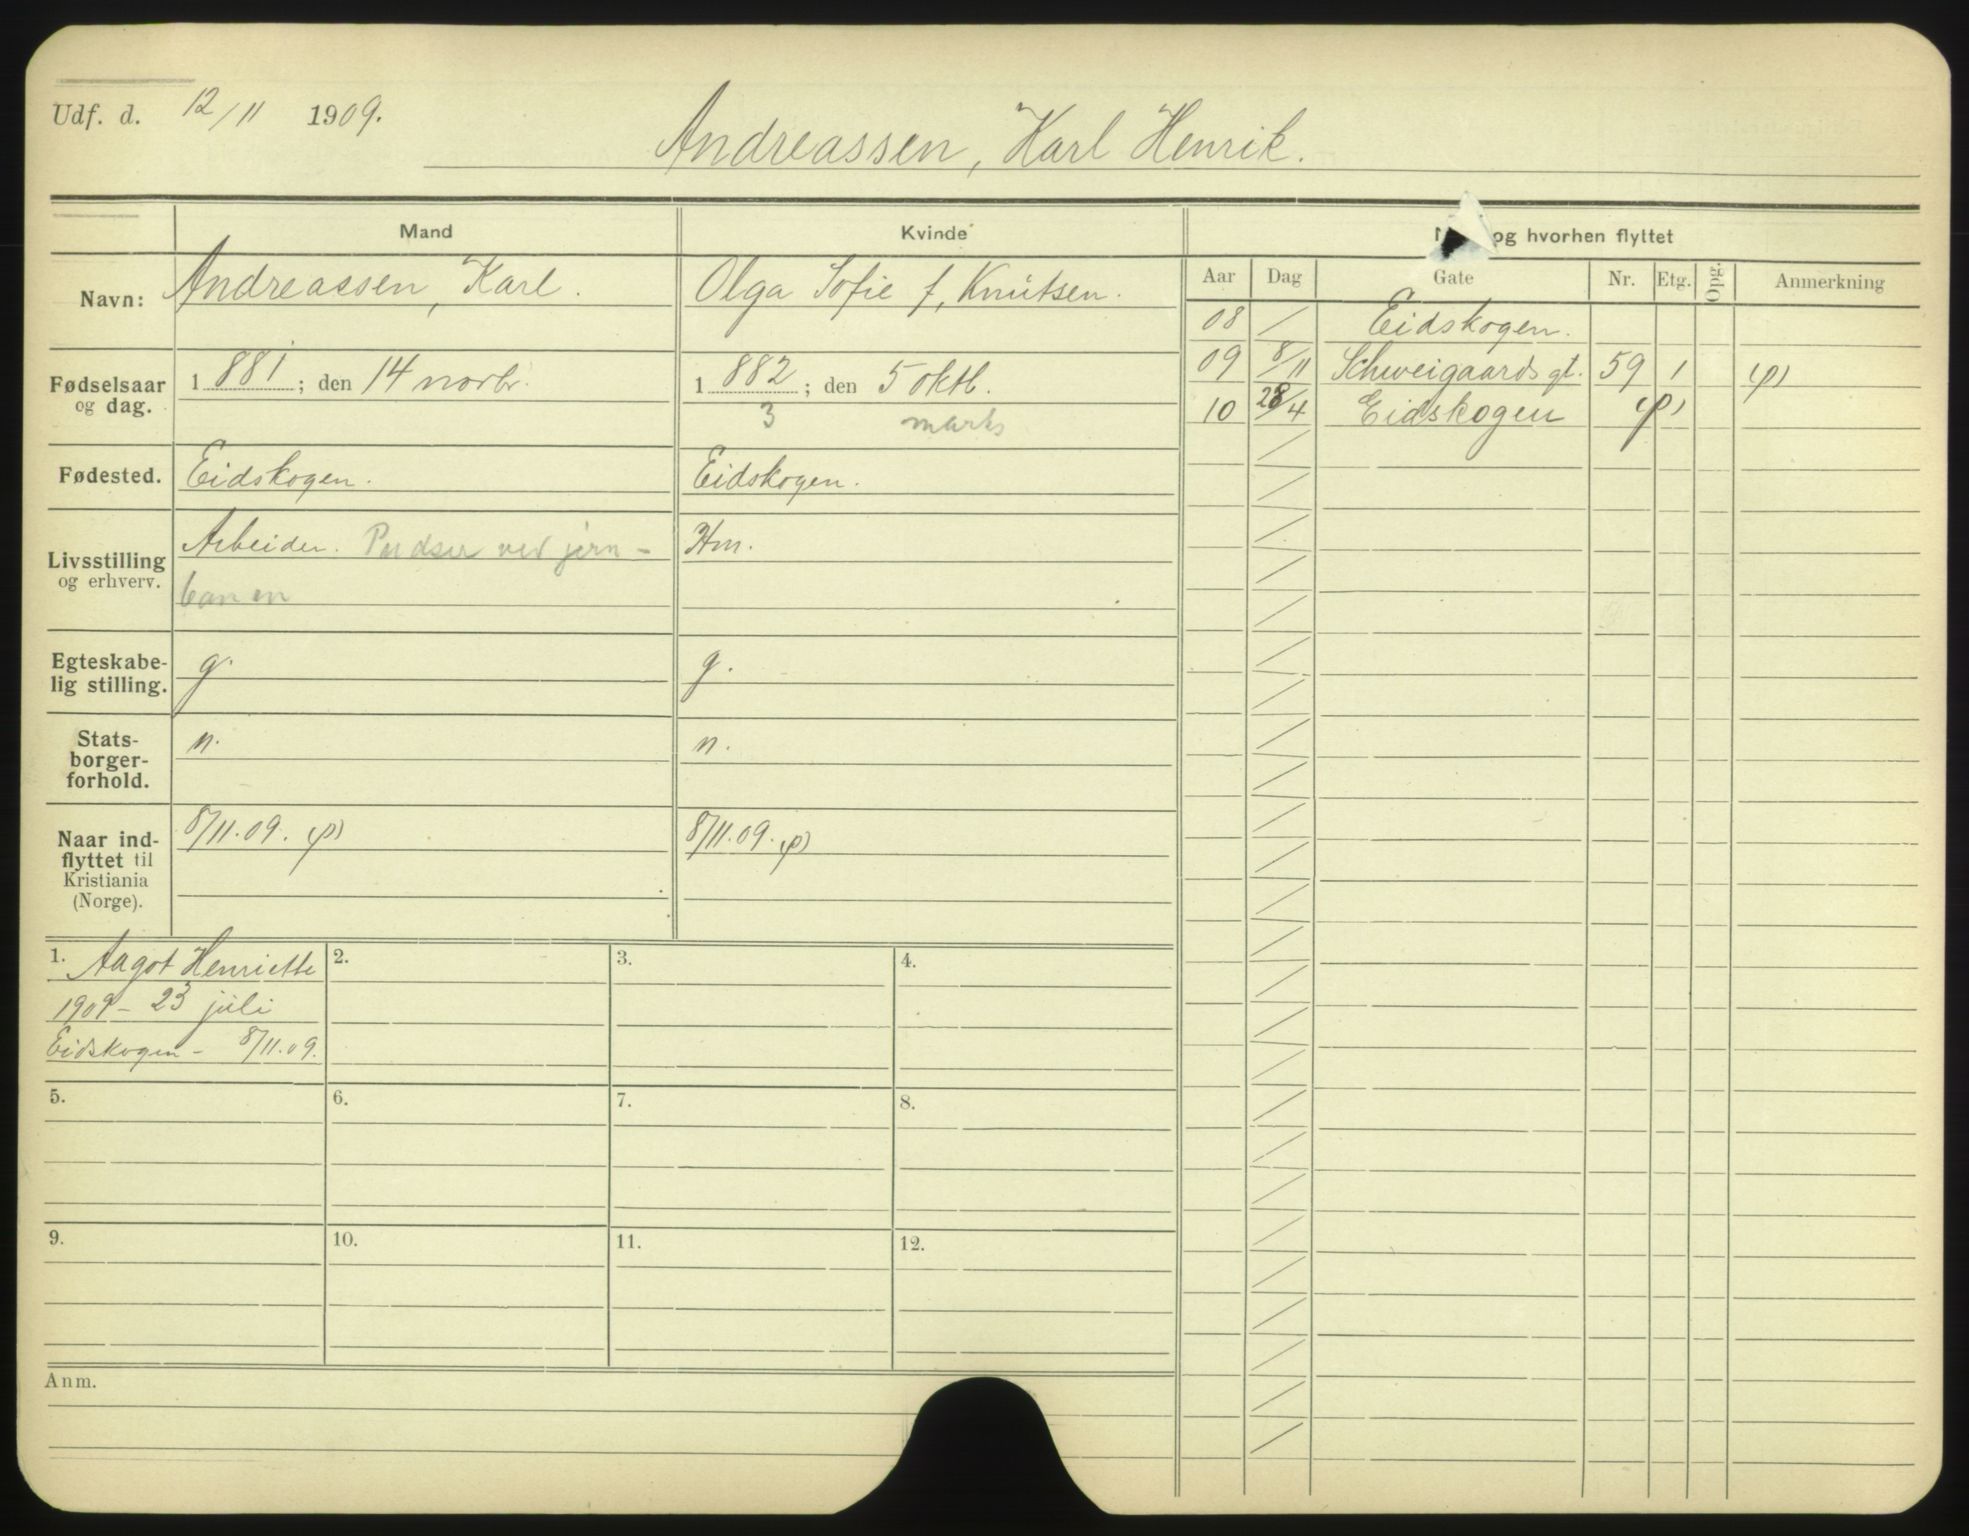 Udf. d. 12/11 1909.
Andreassen, Karl Henrik.
Mand
Kvinde
og hvorhen flyttet
Aar Dag Gate Nr. Etg. Opg. Anmerkning
Navn: Andreassen, Karl. Olga Sofie f, Knutsen.
08 / Eidskogen.
09 8/11 Schweigaards gt. 59 1 (p)
10 28/4 Eidskogen (p)
Fødselsaar
og dag.
1881; den 14 novbr. 1882; den 5 oktb.
3 marts
Fødested. Eidskogen. Eidskogen.
Livsstilling
og erhverv.
Arbeider. Pudser ved jern-
banen
Hm.
Egteskabe-
lig stilling.
g. g.
Stats-
borger-
forhold.
n. n.
Naar ind-
flyttet til
Kristiania
(Norge).
8/11.09. (p) 8/11.09. (p)
1. Aagot Henriette
1909 - 23 juli
Eidskogen - 8/11.09.
2.
3.
4.
5.
6.
7.
8.
9.
10.
11.
12.
Anm.